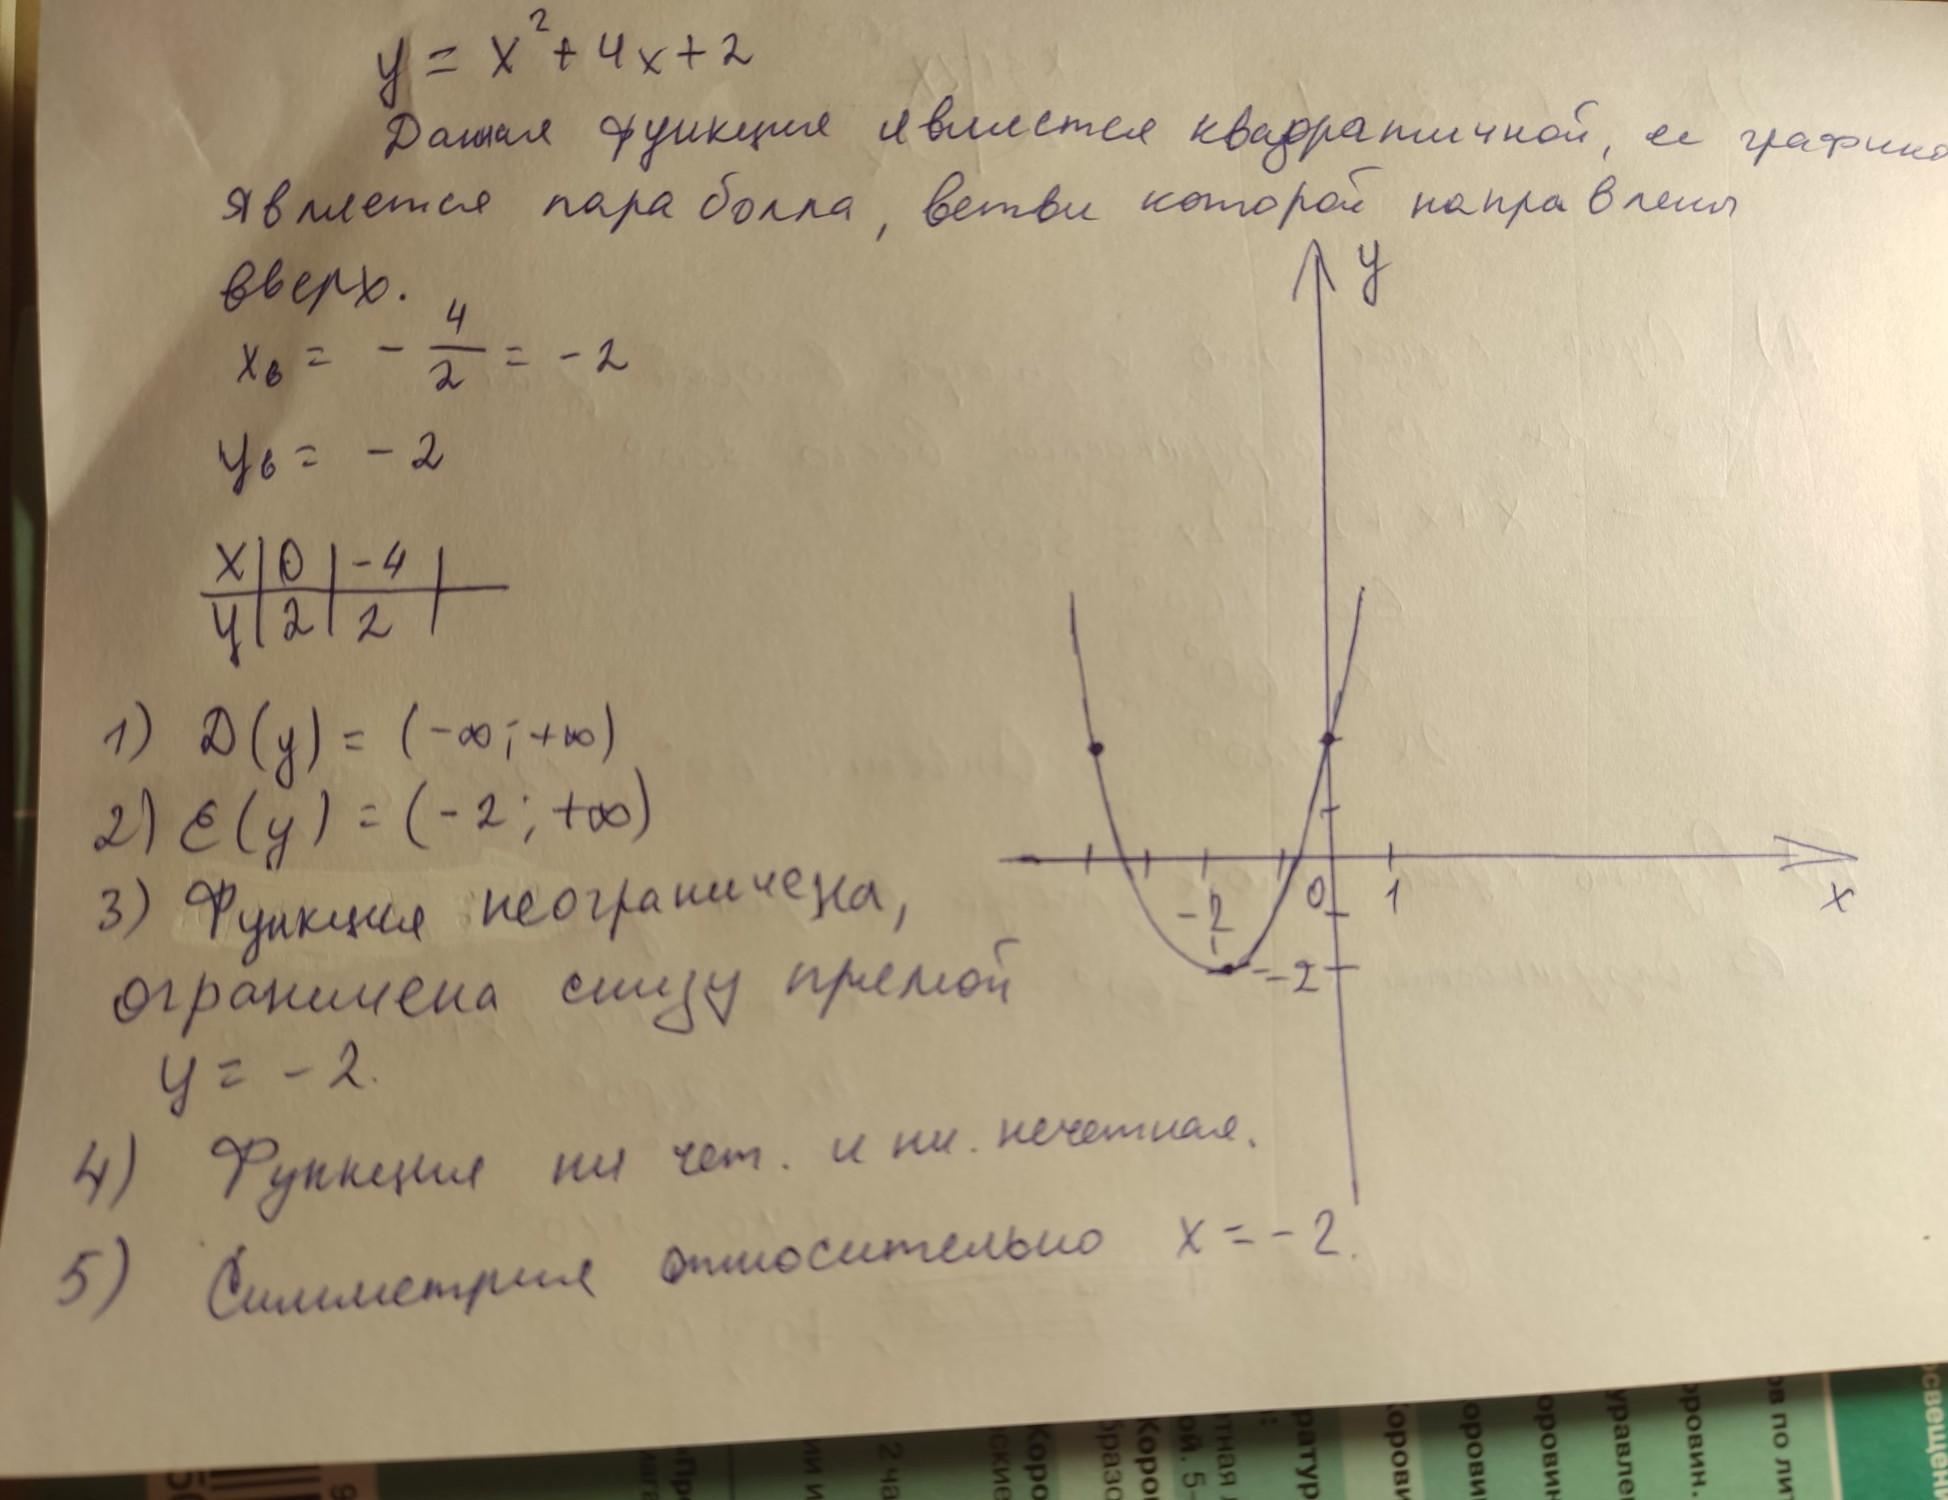 y = x² + 4x + 2
Данная функция является квадратичной, ее графико
является параболла, ветви которой направлены
вверх.
xв = - 4/2 = -2
yв = -2
x | 0 | -4 |
y | 2 | 2 |
1) D(y) = (-∞; +∞)
2) E(y) = (-2; +∞)
3) Функция неограничена,
ограничена снизу прямой
y = -2.
4) Функция ни чет. и ни. нечетная.
5) Симметрия относительно x = -2.
y
x
0
1
-2
-2
9
2 ча
Коро
Корови
оровин
оровин.
ов по лит
управле
ратур
образо
ские
тная
ой. 5-
свещени